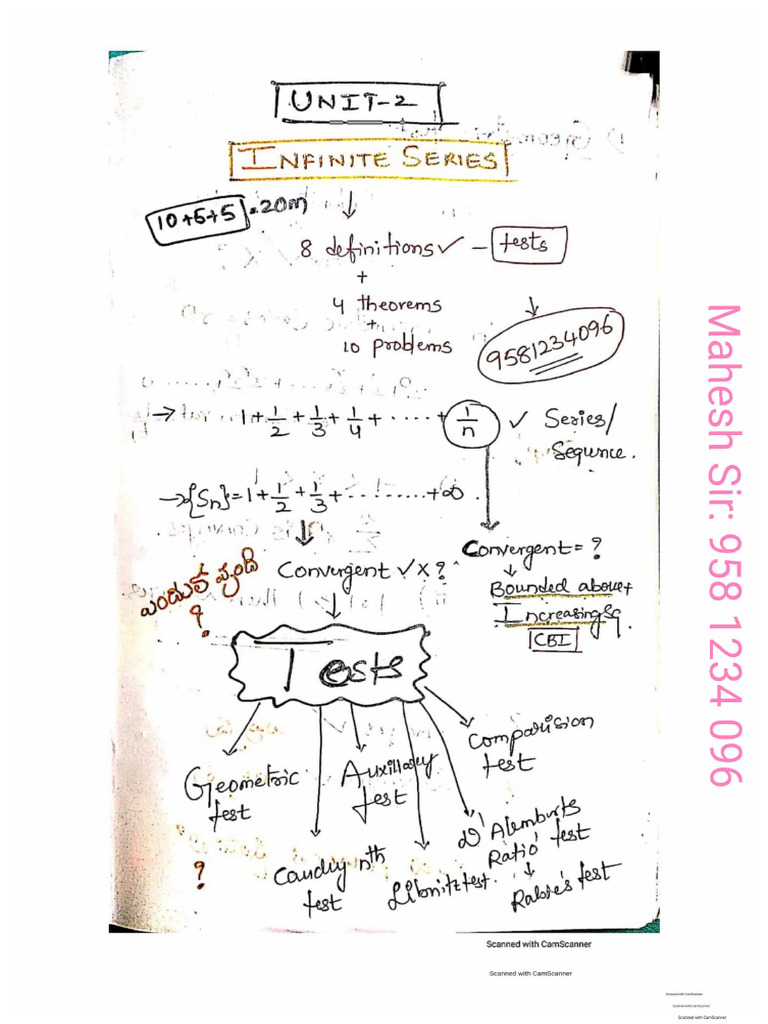 UNIT-2
INFINITE SERIES
10+5+5 = 20m
8 definitions ✓ – tests
+
4 theorems
+
10 problems
9581234096
→ 1+1/2+1/3+1/4+.....+1/n ✓ Series/
Sequnce.
→{Sn}=1+1/2+1/3+.........+∞.
Convergent ✓ x ?
Convergent = ?
Bounded above+
Increasing
CBI
ఎందుకో వుంది
?
Tests
Geometric
test
Auxillary
test
Comparision
test
Caudhy nth
test
Libnitz test.
D'Alemburts
Ratio test
Rabie's test
?
Mahesh Sir: 958 1234 096
Scanned with CamScanner
Scanned with CamScanner
Scanned with CamScanner
Scanned with CamScanner
Scanned with CamScanner